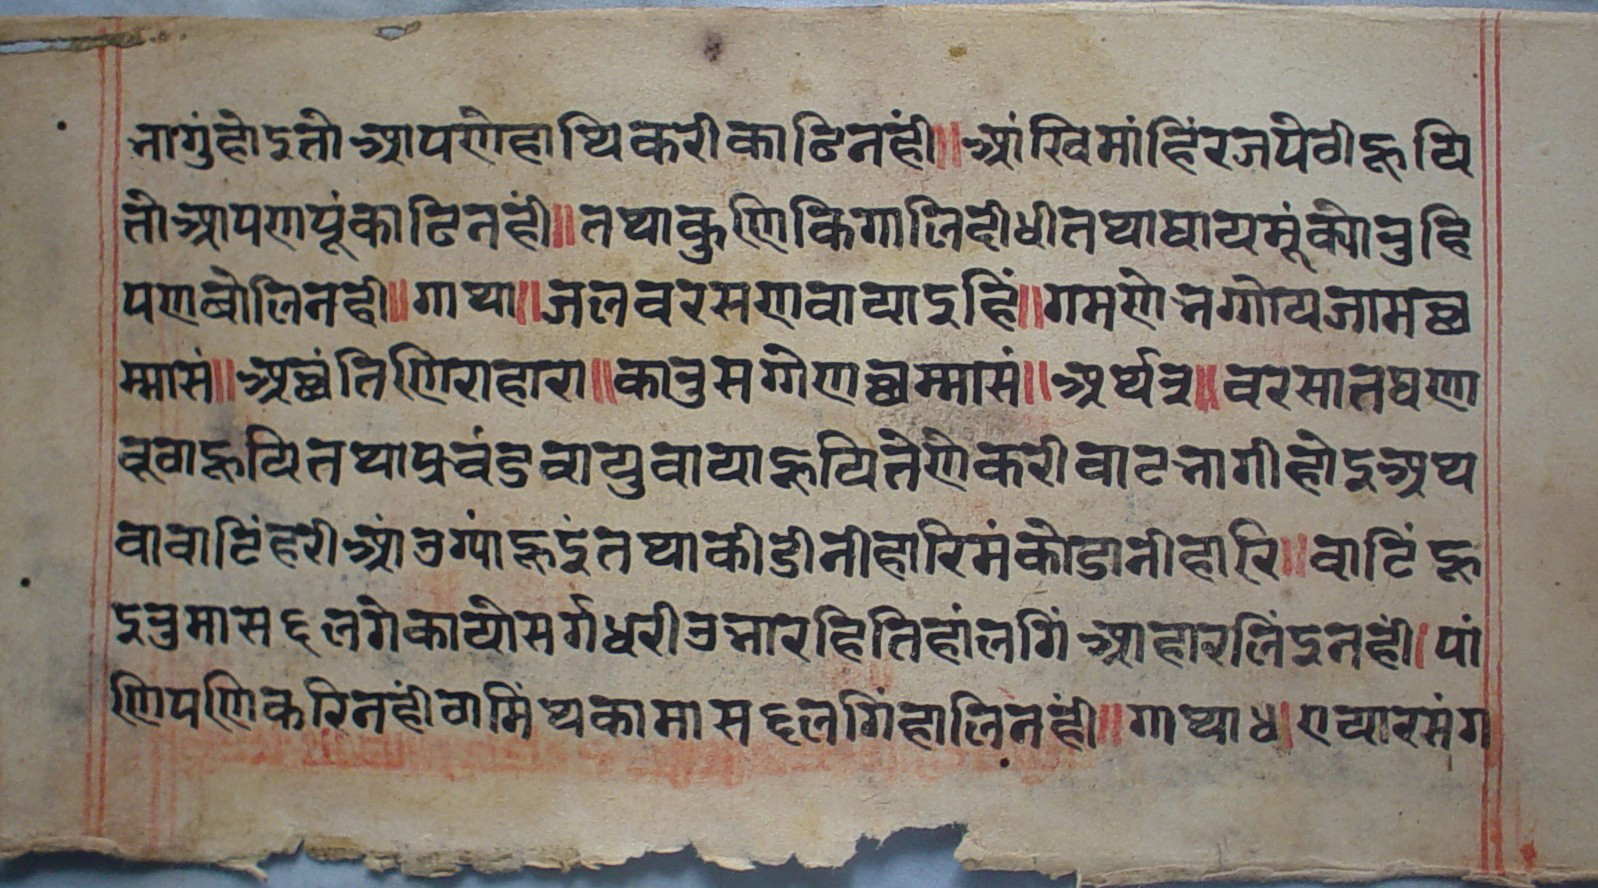 नागुंहोइतोआपणेहाथिकरीकाढिनहीं॥आंखिमांहिंरजपेठीह्रयि
तोआपणपूंकाढिनहीं॥तथाकुणिकिगालिदीधीतथाघायमूंक्योतुहि
पणबोलिनही॥गाथा॥जलवरसणवायाइहिं॥गमणेनग्गेयजामछ
म्मासं॥अछंतिणिराहारा॥काउसग्गेणछम्मासं॥अर्थत्र॥वरसातघणा
वूठाह्रयितथाप्रचंडवायुवायाह्रयितेणेकरीवाटनागीहोइअथ
वावाटिंहरीआंउग्यांह्रइंतथाकीडीनीहारिमंकोडानीहारि॥वाटिंह्र
इतुमासछलगेकायोसर्गधरीउभारहितिहांलगिंआहारलिंइनहीं।पां
णिपणिकरिनहींठामिंथकामासछलगिंहालिनहीं॥गाथाध।एयारसंग